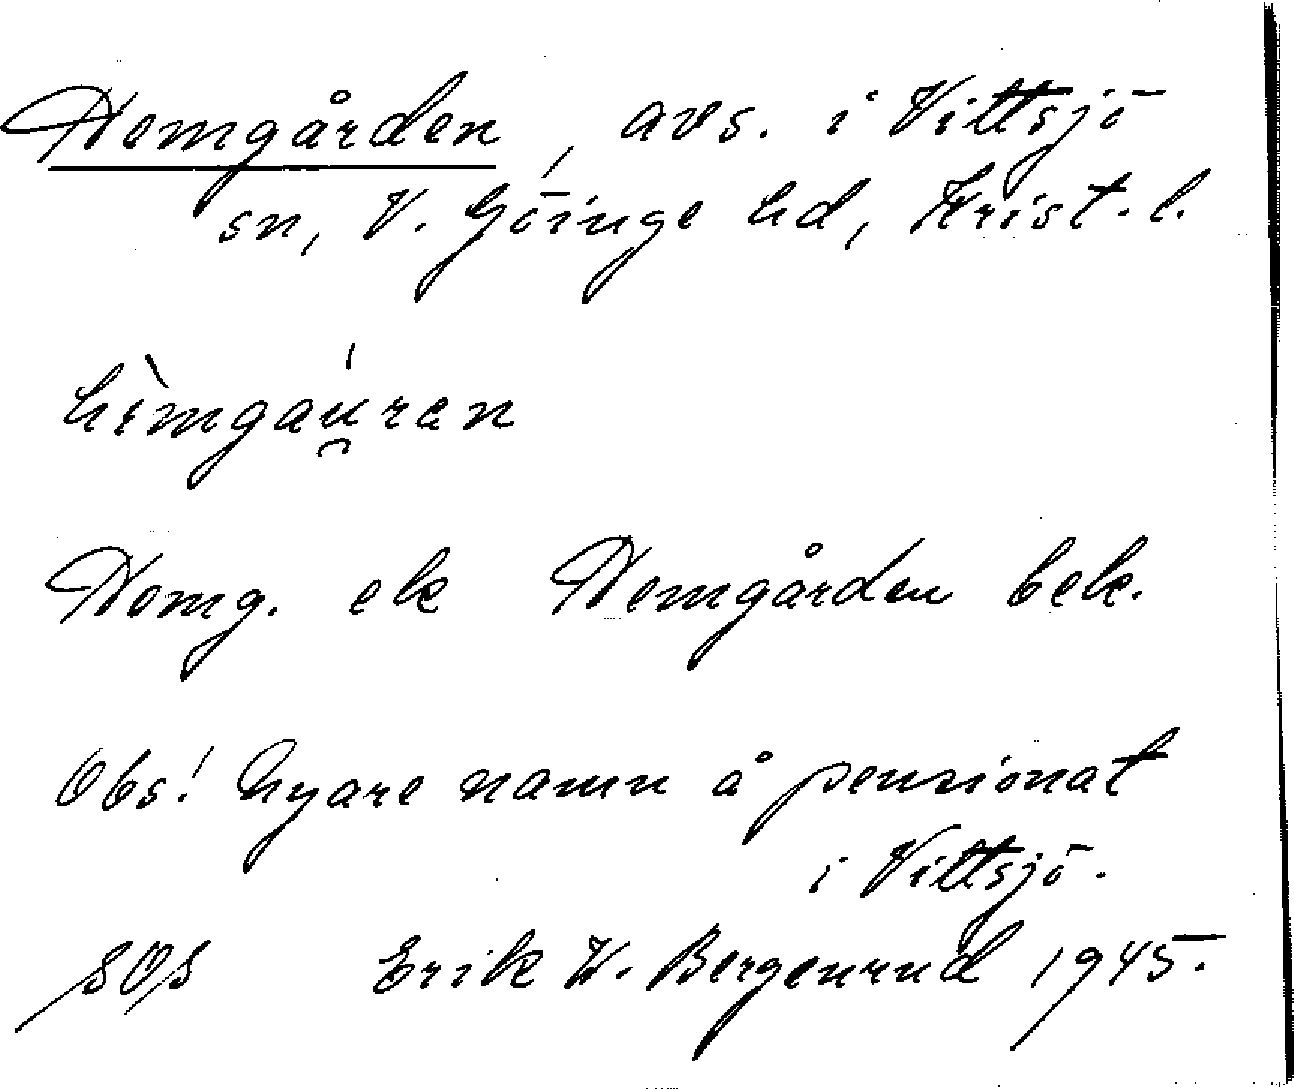 Hemgården, avs. i Vittsjö
sn, V. Göinge hd, Krist. l.
hìmgaú̯ren
Hemg. ek Hemgården bek.
Obs! Nyare namn å pensionat
i Vittsjö.
SOS Erik W. Bergenrud 1945.